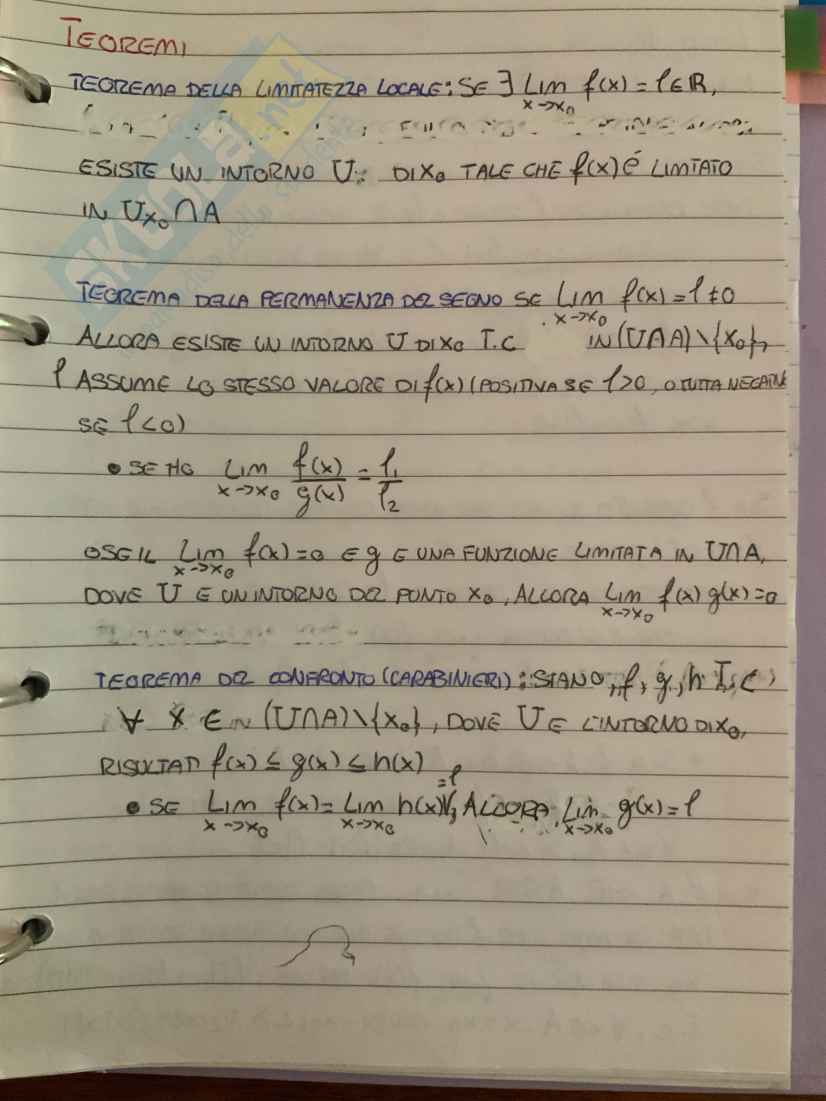 TEOREMI
TEOREMA DELLA LIMITATEZZA LOCALE: SE ∃ Lim x→x₀ f(x) = l ∈ ℝ,
ESISTE UN INTORNO U DI X₀ TALE CHE f(x) É LIMITATO
IN Ux₀ ∩ A
TEOREMA DELLA PERMANENZA DEL SEGNO SE Lim x→x₀ f(x) = l ≠ 0
ALLORA ESISTE UN INTORNO U DI X₀ T.C IN (U∩A)\{x₀},
l ASSUME LO STESSO VALORE DI f(x) (POSITIVA SE l>0, O TUTTA NEGATIVA
SE l<0)
• SE HO Lim x→x₀ f(x)/g(x) = l₁/l₂
O SE IL Lim x→x₀ f(x)=0 E g E UNA FUNZIONE LIMITATA IN U∩A,
DOVE U E UN INTORNO DEL PUNTO X₀, ALLORA Lim x→x₀ f(x) g(x)=0
TEOREMA DEL CONFRONTO (CARABINIERI): SIANO, f, g, h T.C
∀ X ∈ IN (U∩A)\{x₀}, DOVE U E L'INTORNO DI X₀,
RISULTA f(x) ≤ g(x) ≤ h(x)
• SE Lim x→x₀ f(x) = Lim x→x₀ h(x) =l, ALLORA Lim x→x₀ g(x) = l
SKUOLA.net